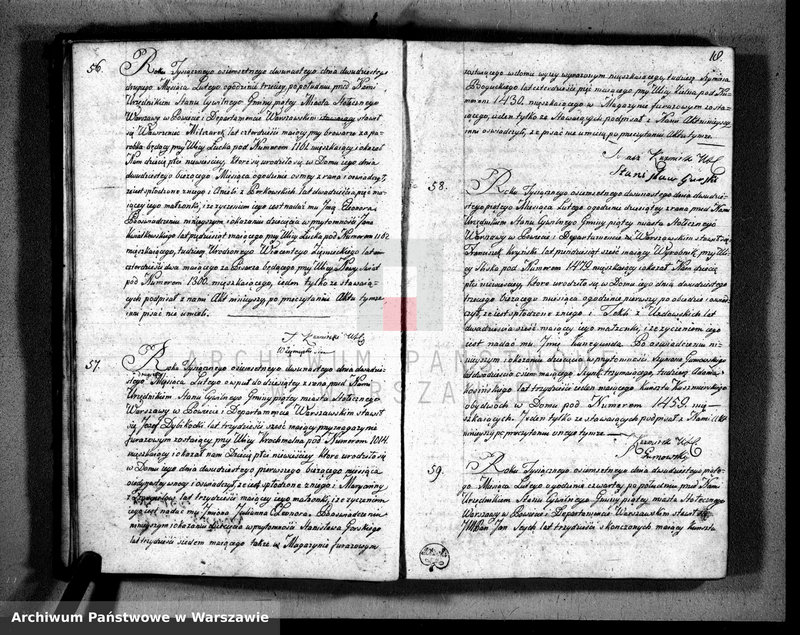 56. Roku Tysiącznego osiemsetnego dwunastego dnia dwudziestego
drugiego Miesiąca Lutego o godzinie trzeciey popołudniu przed Nami
Urzędnikiem Stanu Cywilnego Gminy piątey Miasta Stołecznego
Warszawy w Powiecie i Departamencie Warszawskim stawaiący stawił
się Wawrzeniec lat czterdzieści maiący przy browarze za pa-
robka będący przy Ulicy Łucka pod Numerem 1161 mieszkaiący i okazał
Nam dziecię płci niewieściey, które się urodziło się w Domu iego dnia
dwudziestego bieżącego Miesiąca o godzinie ósmey z rana i oświadczył,
że iest spłodzone z niego i Anieli z lat dwadzieścia pięć ma-
iącey iego małżonki, i że życzeniem iego iest nadać mu Imę Eleonora.
Po uczynieniu ninieyszym i okazaniu dziecięcia w przytomności Jana
Kwiatkowskiego lat pięćdziesiąt maiącego przy Ulicy Łucka pod Numerem 1162
mieszkaiącego, tudzież Urodzonego Wincentego lat
czterdzieści dwa maiącego za Pisarza będącego przy Ulicy Nowy Świat
pod Numerem 1300 mieszkaiącego, ieden tylko ze stawaią-
cych podpisał z nami Akt ninieyszy, po przeczytaniu Aktu tym że
inni pisać nie umieli.
57. Roku Tysiącznego osiemsetnego dwunastego dnia dwudzie-
stego Miesiąca Lutego o wpół do dziesiątey z rana przed Nami
Urzędnikiem Stanu Cywilnego Gminy piątey miasta Stołecznego
Warszawy w Powiecie i Departamencie Warszawskim stawił
się Józef Dybilocki lat trzydzieści sześć maiący przy magazynie
furażowym zostaiący przy Ulicy Krochmalna pod Numerem 1014
mieszkaiący i okazał nam Dziecię płci niewieściey które urodziło się
w Domu iego dnia dwudziestego pierwszego bieżącego miesiąca
i oświadczył, że iest spłodzone z niego i Maryanny
lat trzydzieści maiącey iego małżonki, i że życzeniem
iego iest nadać mu Imiona Julianna Eleonora. Po oświadczeniu
ninieyszym i okazaniu dziecięcia w przytomności Stanisława Gorskiego
lat trzydzieści siedem maiącego także w Magazynie furażowym
18.
zostaiącego w domu wyżey wyrażonym mieszkaiącego, tudzież Szymona
Bogusckiego lat pięć maiącego przy Ulicy Żelna pod Nu-
merem 1430 mieszkaiącego w Magazynie furażowym zosta-
iącego, ieden tylko ze Stawaiących podpisał z Nami Akt ninieyszy
inni oświadczyli, że pisać nie umieią po przeczytaniu Aktu tym że
Stanisław Gorski
58. Roku Tysiącznego osiemsetnego dwunastego dnia dwudzie-
stego piątego Miesiąca Lutego o godzinie dziesiątey z rana przed Nami
Urzędnikiem Stanu Cywilnego Gminy piątey miasta Stołecznego
Warszawy w Powiecie i Departamencie Warszawskim stawił się
Franciszek lat pięćdziesiąt sześć maiący Wyrobnik przy Uli-
cy Śliska pod Numerem 1479 mieszkaiący i okazał Nam dziecię
płci niewieściey, które urodziło się w Domu iego dnia dwudziestego
trzeciego bieżącego miesiąca o godzinie pierwszey po obiedzie i oświad-
czył, że iest spłodzone z niego i Tekli z lat
dwadzieścia sześć maiącey iego małżonki, i że życzeniem iego
iest nadać mu Imę Kunegunda. Po oświadczeniu ni-
nieyszym i okazaniu dziecięcia w przytomności Szymona
lat dwadzieścia osiem maiącego Szynk trzymaiącego, tudzież Adama
lat trzydzieści ieden maiącego kunsztu
obydwóch w Domu pod Numerem 1459. mie-
szkaiących. Ieden tylko ze stawaiących podpisał z Nami Akt
ninieyszy po przeczytaniu onego tym że
59. Roku Tysiącznego osiemsetnego dnia dwudziestego piąte-
go Miesiąca Lutego o godzinie czwartey po południu przed Nami
Urzędnikiem Stanu Cywilnego Gminy piątey miasta Stołecznego
Warszawy w Powiecie i Departamencie Warszawskim stawił się
JMPan Jan lat trzydzieści skończonych maiący kunsztu
ARCHIWUM PAŃ
WARSZA
Archiwum Państwowe w Warszawie